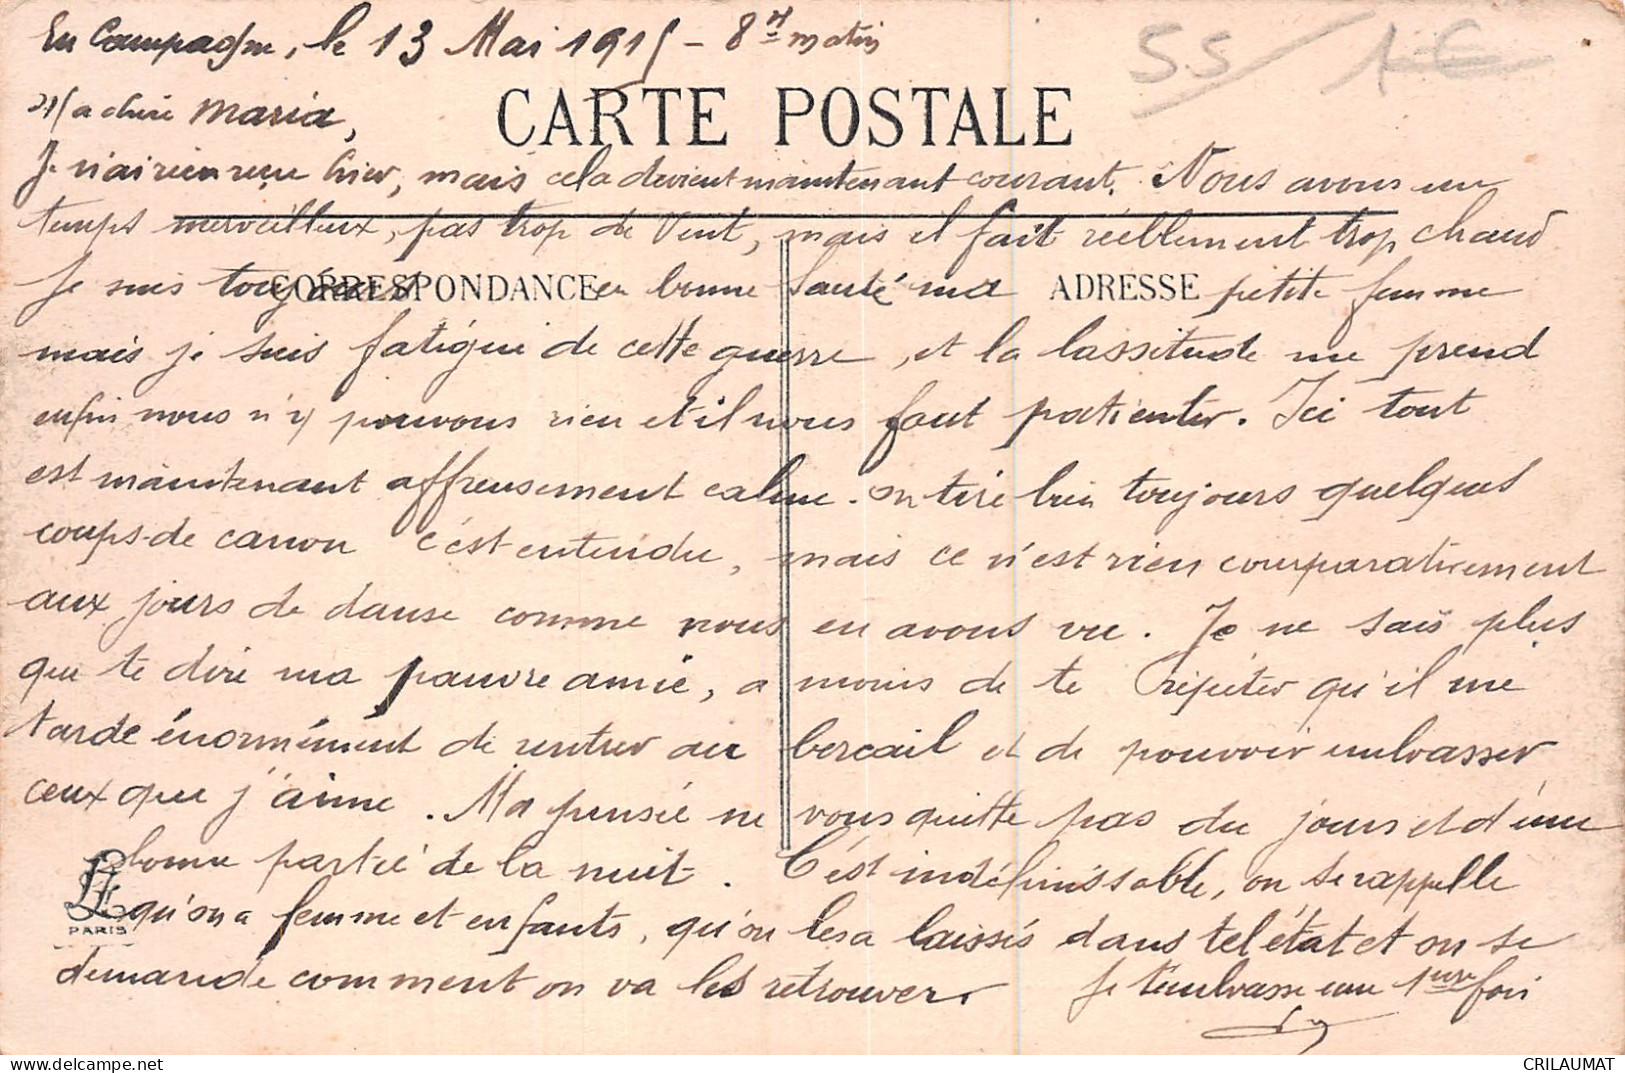 En Campagne, le 13 Mai 1915 - 8H matin
55 / 1€
Ma chère Maria,
CARTE POSTALE
Je n'ai rien reçu hier, mais cela devient maintenant courant. Nous avons un
temps merveilleux, pas trop de vent, mais il fait réellement trop chaud
Je suis toujours en bonne santé ma petite femme
CORRESPONDANCE
ADRESSE
mais je suis fatigué de cette guerre, et la lassitude me prend
enfin nous n'y pouvons rien et il nous faut patienter. Ici tout
est maintenant affreusement calme. on tire bien toujours quelques
coups de canon c'est entendu, mais ce n'est rien comparativement
aux jours de danse comme nous en avons vu. Je ne sais plus
que te dire ma pauvre amie, a moins de te répéter qu'il me
tarde énormément de rentrer au bercail et de pouvoir embrasser
ceux que j'aime. Ma pensée ne vous quitte pas du jour et d'une
bonne partie de la nuit. C'est indéfinissable, on se rappelle
qu'on a femme et enfants, qu'on les a laissés dans tel état et on se
PARIS
demande comment on va les retrouver. Je t'embrasse une 1ère fois
CRILAUMAT